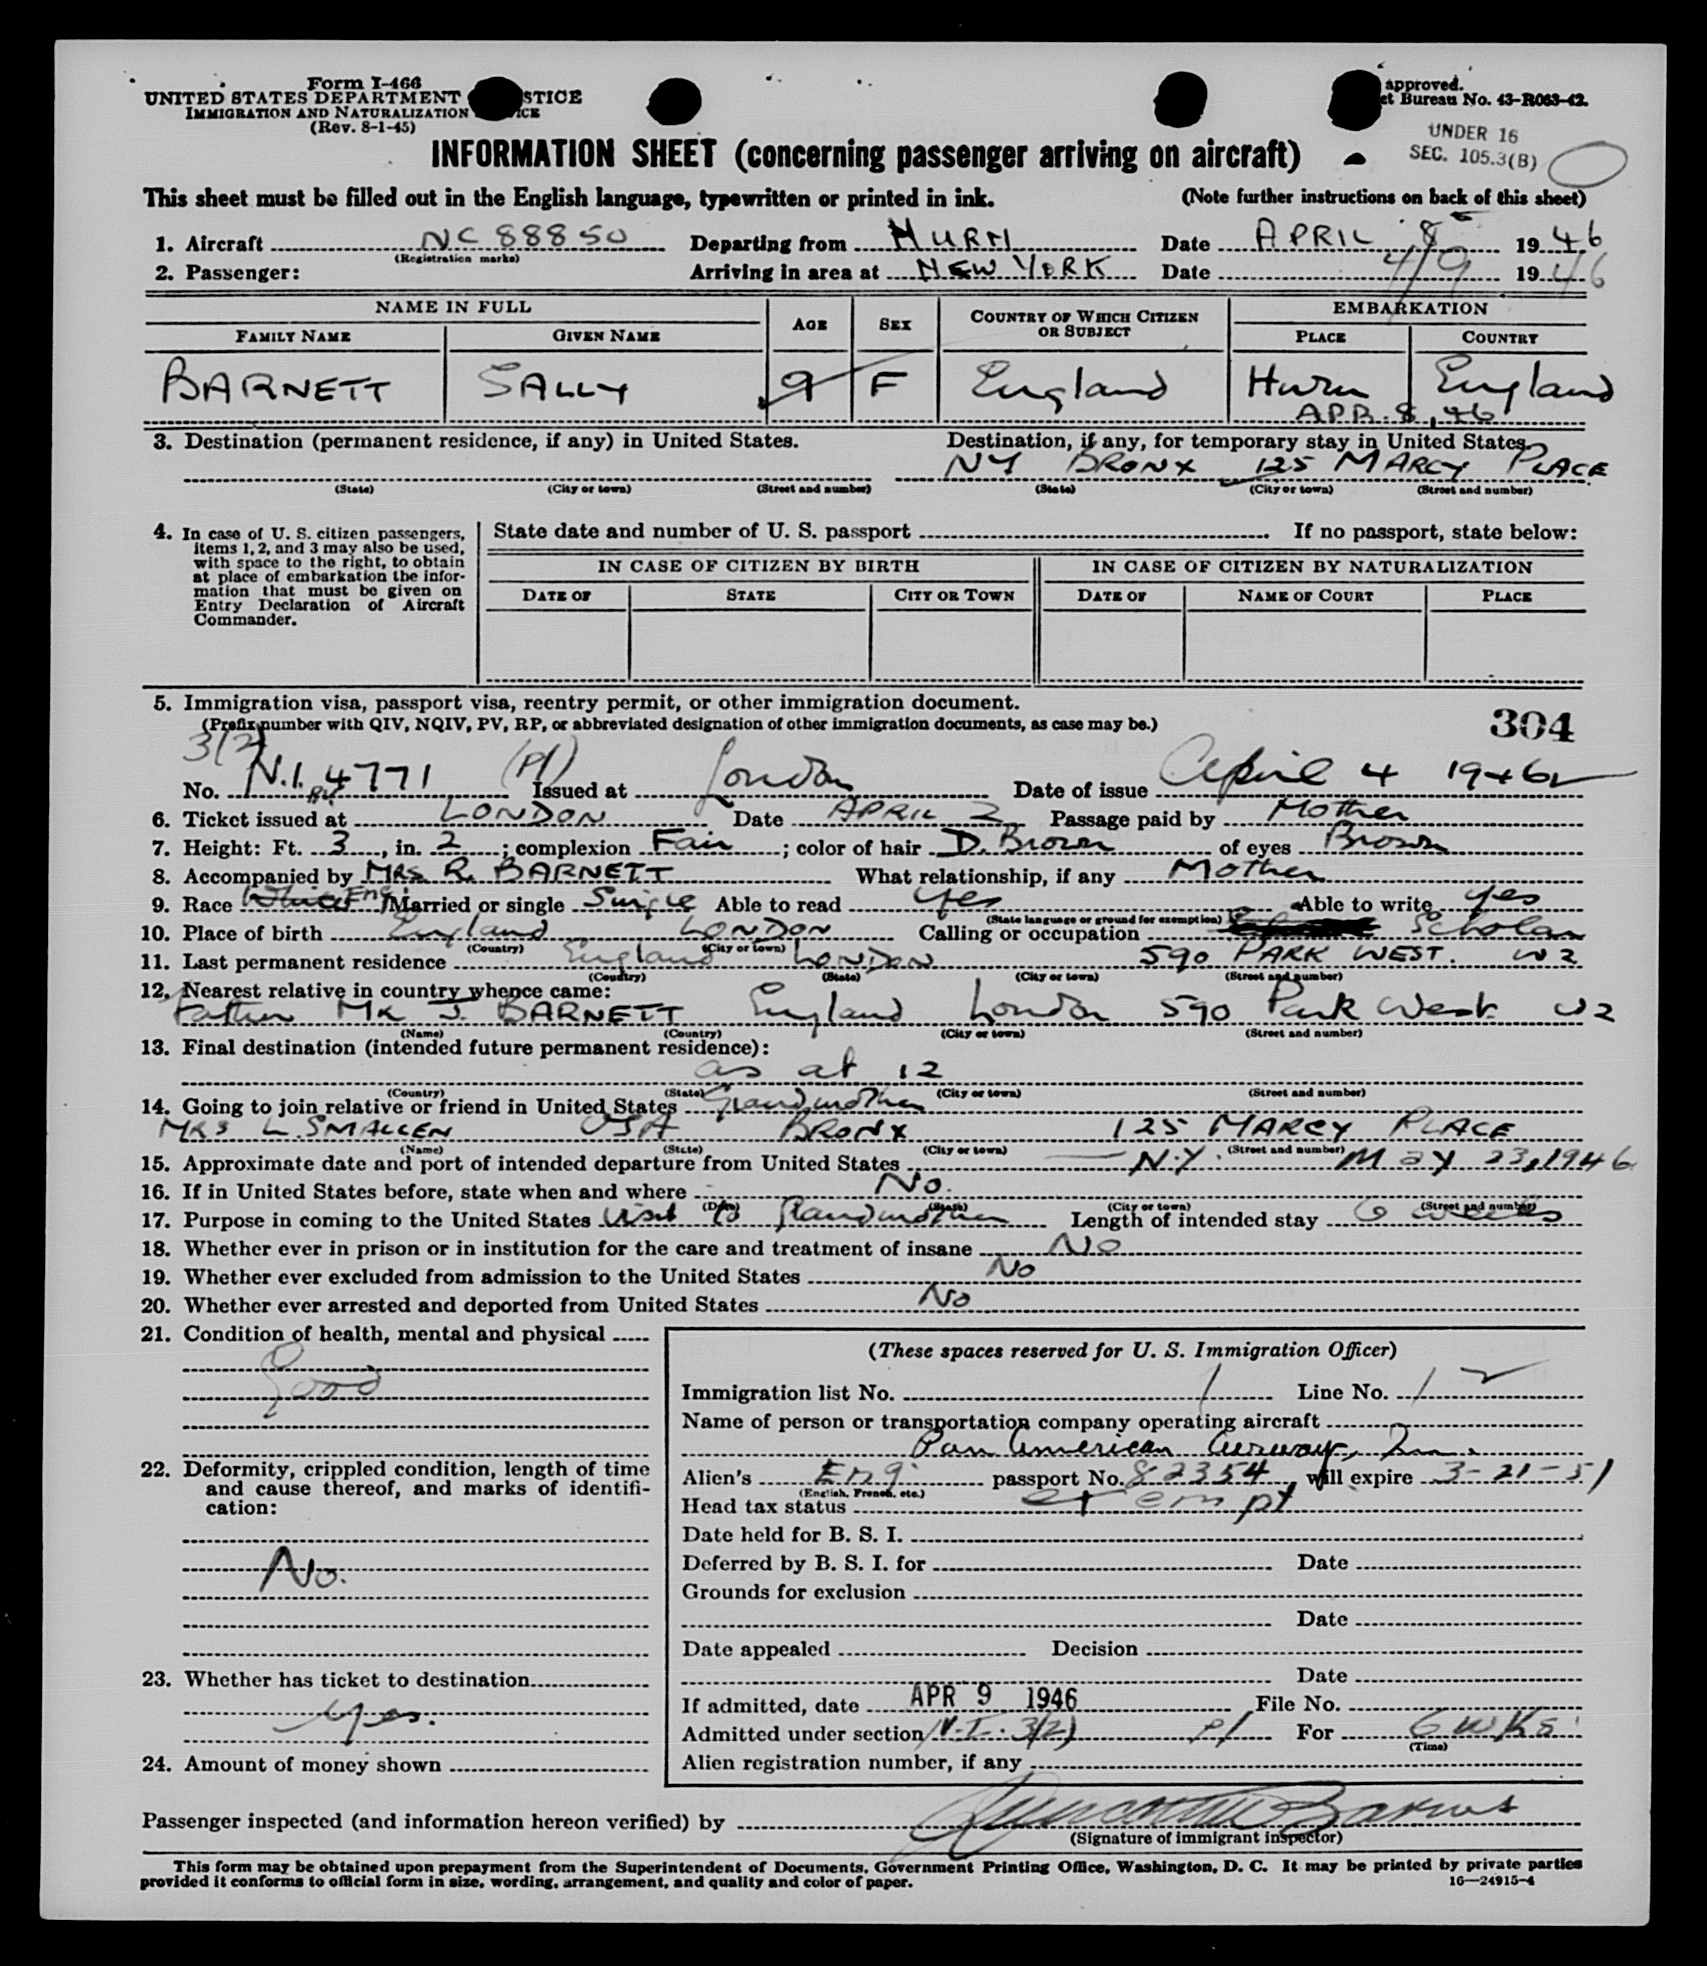 Form I-466
UNITED STATES DEPARTMENT STICE
IMMIGRATION AND NATURALIZATION ICE
(Rev. 8-1-45)
approved.
et Bureau No. 43-R063-42.
UNDER 16
SEC. 105.3(B)
INFORMATION SHEET (concerning passenger arriving on aircraft)
This sheet must be filled out in the English language, typewritten or printed in ink. (Note further instructions on back of this sheet)
1. Aircraft NC 88850 Departing from HURN Date APRIL 8 1946
(Registration marks)
2. Passenger: Arriving in area at NEW YORK Date 4/9 1946
NAME IN FULL AGE SEX COUNTRY OF WHICH CITIZEN OR SUBJECT EMBARKATION
FAMILY NAME GIVEN NAME PLACE COUNTRY
BARNETT SALLY 9 F England Hurn England
APR. 8, 46
3. Destination (permanent residence, if any) in United States. Destination, if any, for temporary stay in United States
NY BRONX 125 MARCY PLACE
(State) (City or town) (Street and number) (State) (City or town) (Street and number)
4. In case of U. S. citizen passengers, items 1, 2, and 3 may also be used, with space to the right, to obtain at place of embarkation the information that must be given on Entry Declaration of Aircraft Commander.
State date and number of U. S. passport If no passport, state below:
IN CASE OF CITIZEN BY BIRTH IN CASE OF CITIZEN BY NATURALIZATION
DATE OF STATE CITY OR TOWN DATE OF NAME OF COURT PLACE
5. Immigration visa, passport visa, reentry permit, or other immigration document.
(Prefix number with QIV, NQIV, PV, RP, or abbreviated designation of other immigration documents, as case may be.)
304
3(2)
No. N.I. 4771 (Pl) Issued at London Date of issue April 4 1946
6. Ticket issued at LONDON Date APRIL 2 Passage paid by Mother
7. Height: Ft. 3, in. 2; complexion Fair; color of hair D. Brown of eyes Brown
8. Accompanied by MRS R. BARNETT What relationship, if any Mother
9. Race White Eng. Married or single Single Able to read Yes Able to write yes
(State language or ground for exemption)
10. Place of birth England LONDON Calling or occupation Scholar
(Country) (City or town)
11. Last permanent residence England LONDON 590 PARK WEST. W2
(Country) (State) (City or town) (Street and number)
12. Nearest relative in country whence came:
Father MR J. BARNETT England London 590 Park West W2
(Name) (Country) (City or town) (Street and number)
13. Final destination (intended future permanent residence):
as at 12
(Country) (State) (City or town) (Street and number)
14. Going to join relative or friend in United States Grandmother
MRS L. SMALLEN USA BRONX 125 MARCY PLACE
(Name) (State) (City or town) (Street and number)
15. Approximate date and port of intended departure from United States N.Y. May 23, 1946
16. If in United States before, state when and where No.
(Date) (State) (City or town) (Street and number)
17. Purpose in coming to the United States Visit to Grandmother Length of intended stay 6 weeks
18. Whether ever in prison or in institution for the care and treatment of insane No
19. Whether ever excluded from admission to the United States No
20. Whether ever arrested and deported from United States No
21. Condition of health, mental and physical
Good
22. Deformity, crippled condition, length of time and cause thereof, and marks of identification:
No.
23. Whether has ticket to destination
Yes.
24. Amount of money shown
(These spaces reserved for U. S. Immigration Officer)
Immigration list No. 1 Line No. 12
Name of person or transportation company operating aircraft
Pan American Airways, Inc.
Alien's Eng. passport No. 82354 will expire 3-21-51
(English, French, etc.)
Head tax status exempt
Date held for B. S. I.
Deferred by B. S. I. for Date
Grounds for exclusion
Date
Date appealed Decision
Date
If admitted, date APR 9 1946 File No.
Admitted under section N.I. 3(2) Pl For 6 wks.
(Time)
Alien registration number, if any
Passenger inspected (and information hereon verified) by
(Signature of immigrant inspector)
This form may be obtained upon prepayment from the Superintendent of Documents, Government Printing Office, Washington, D. C. It may be printed by private parties
provided it conforms to official form in size, wording, arrangement, and quality and color of paper. 16—24915-4